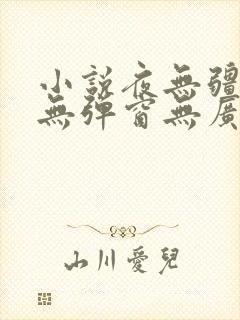 小說夜無疆
無彈窗無廣
山川愛兒